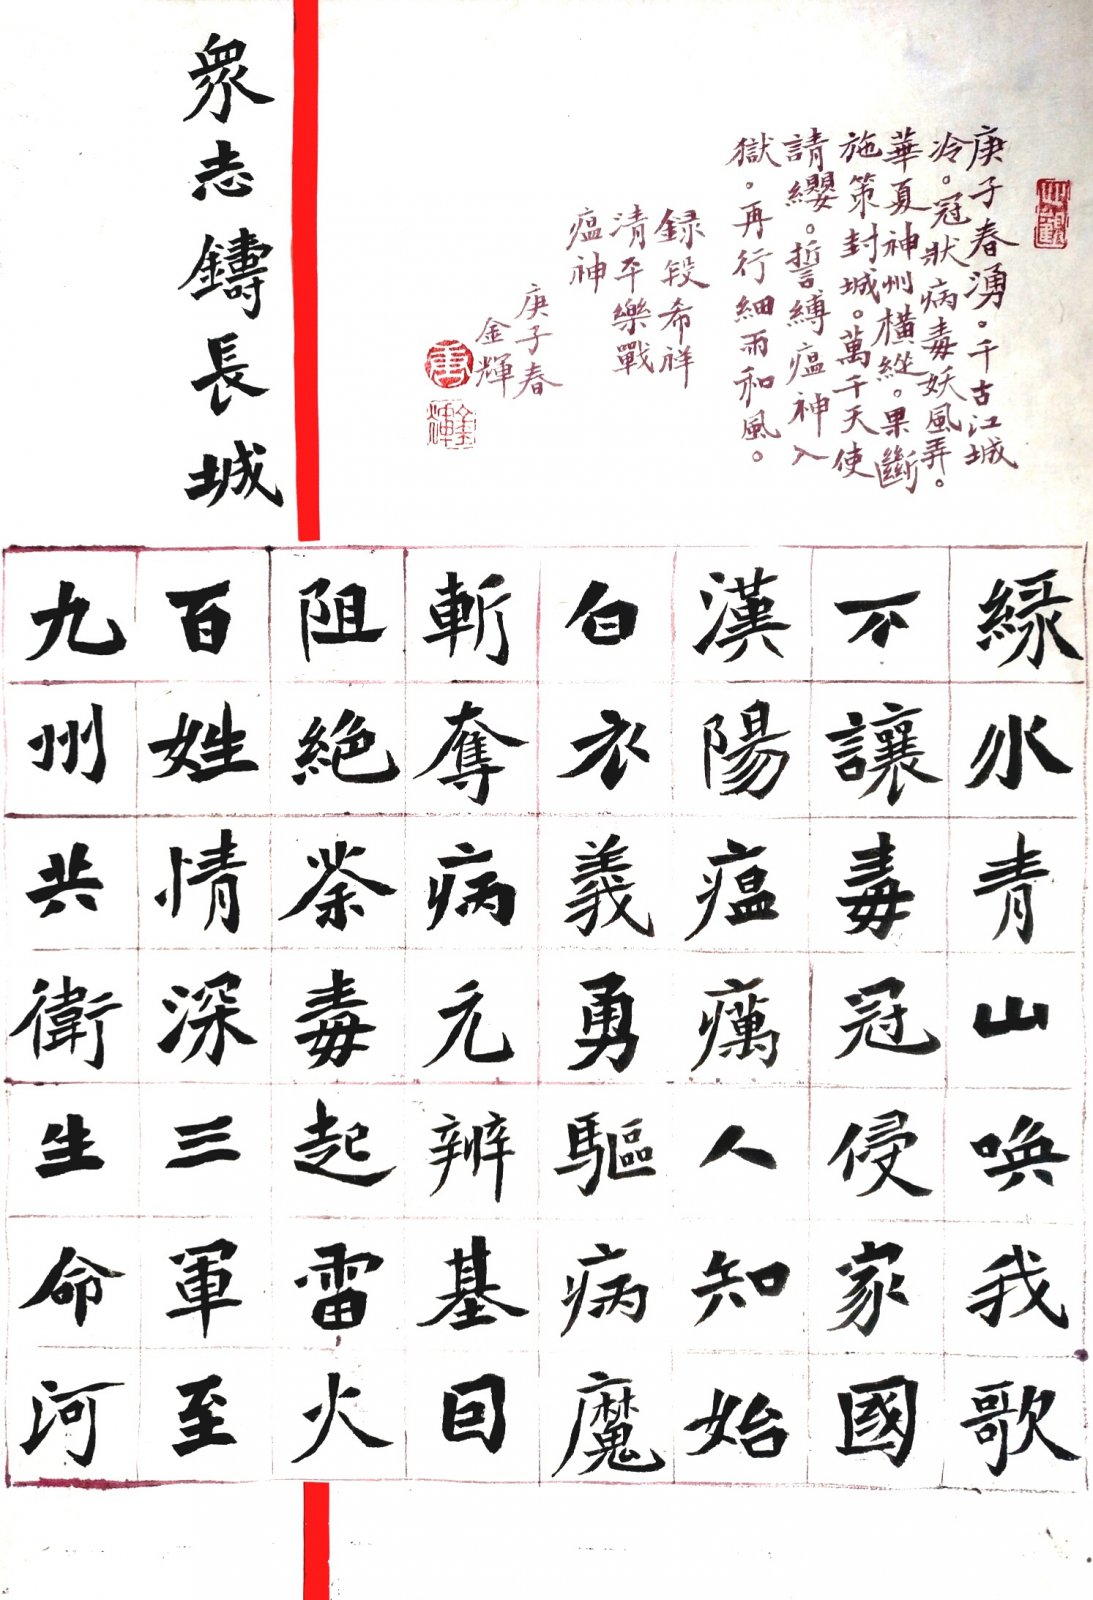 庚子春湧。千古江城
冷。冠狀病毒妖風弄。
華夏神州橫縱。果斷
施策封城。萬千天使
請纓。誓縛瘟神入
獄。再行細雨和風。
録段希祥
清平樂戰
瘟神
庚子春
金輝
金輝
衆志鑄長城
緑水青山喚我歌
不讓毒冠侵家國
漢陽瘟癘人知始
白衣義勇驅病魔
斬奪病元辨基囙
阻絕荼毒起雷火
百姓情深三軍至
九州共衛生命河